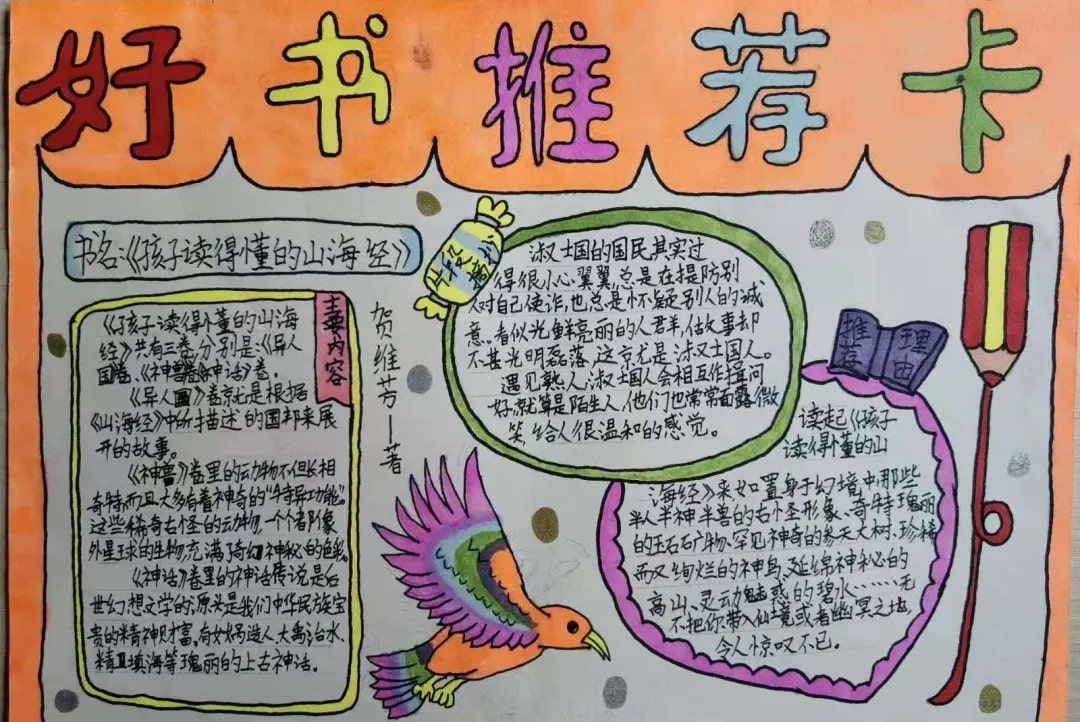 好书推荐卡
书名:《孩子读得懂的山海经》
贺维芳—著
主要内容
《孩子读得懂的山海
经》共有三卷,分别是:《异人
国》卷、《神兽》卷《神话》卷。
《异人国》卷就是根据
《山海经》中所描述的国邦来展
开的故事。
《神兽》卷里的动物不但长相
奇特,而且大多有着神奇的“特异功能”。
这些稀奇古怪的动物,一个个都象
外星球的生物,充满了奇幻神秘的色彩。
《神话》卷里的神话传说是后
世幻想文学的源头,是我们中华民族宝
贵的精神财富,有女娲造人、大禹治水、
精卫填海等瑰丽的上古神话。
好段摘抄
淑士国的国民其实过
得很小心翼翼,总是在提防别
人对自己使诈,也总是怀疑别人的诚
意。看似光鲜亮丽的人群,做事却
不甚光明磊落,这就是淑士国人。
遇见熟人,淑士国人会相互作揖问
好,就算是陌生人,他们也常常面露微
笑,给人很温和的感觉。
推荐理由
读起《孩子
读得懂的山
海经》来如置身于幻境中,那些
半人半神半兽的古怪形象、奇特瑰丽
的玉石矿物、罕见神奇的参天大树、珍稀
而又绚烂的神鸟、延绵神秘的
高山、灵动魅惑的碧水……无
不把你带入仙境或者幽冥之地,
令人惊叹不已。